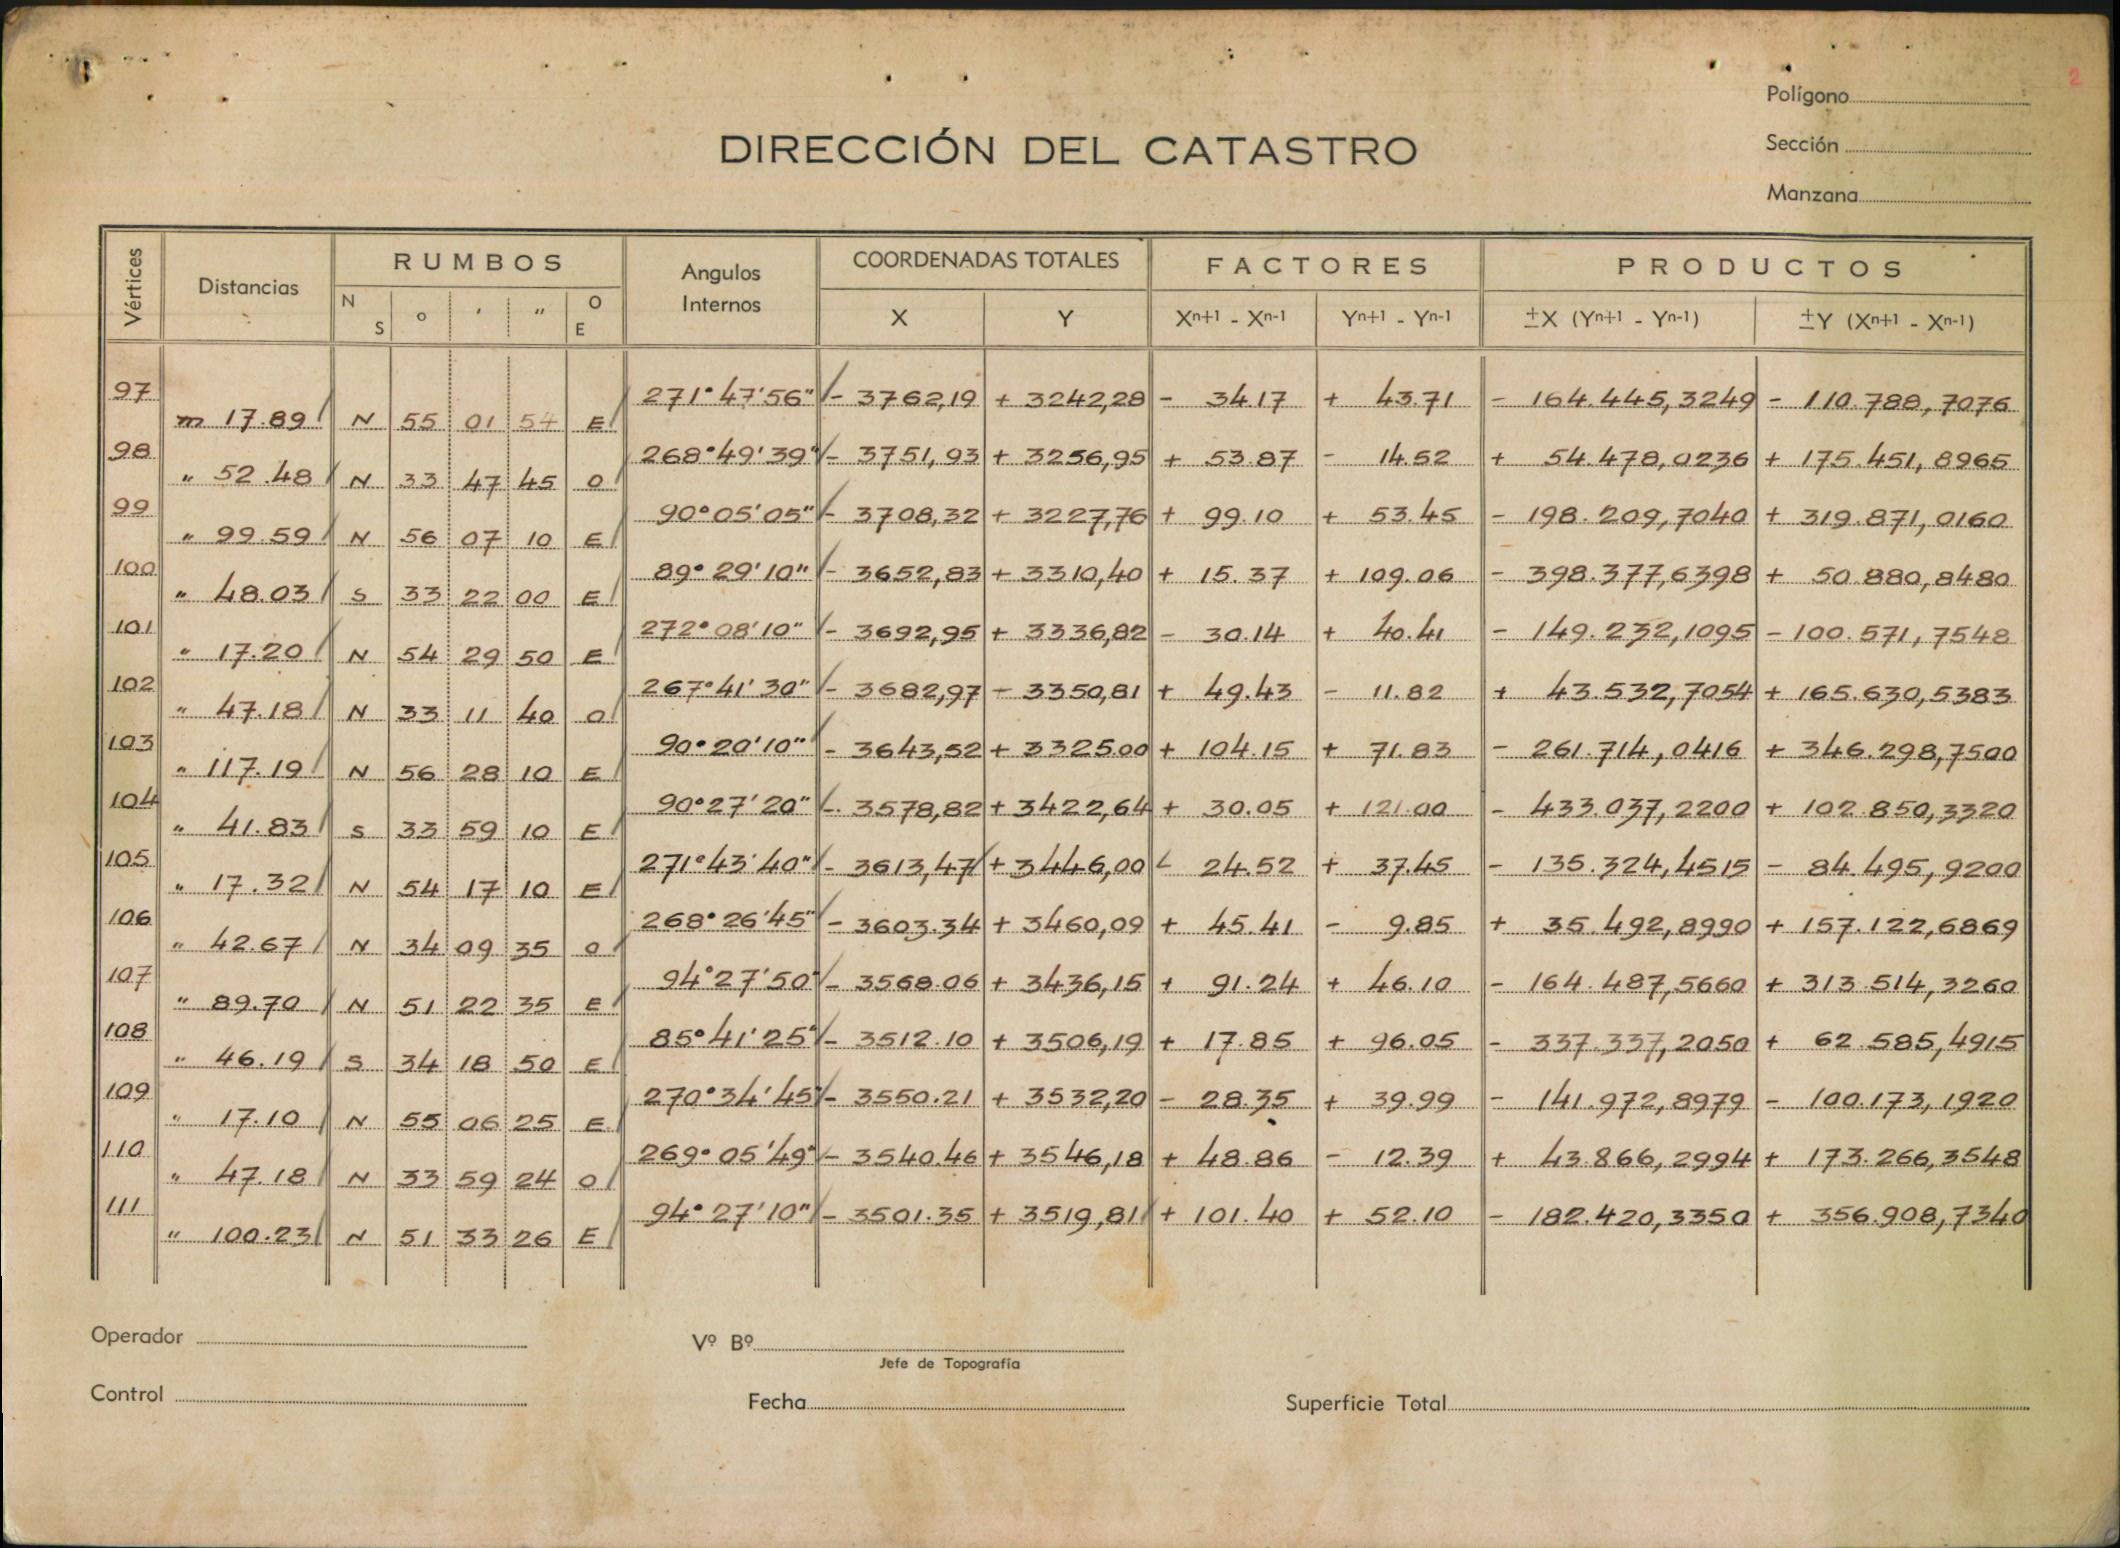 2
Polígono
Sección
Manzana
DIRECCIÓN DEL CATASTRO
Vértices Distancias RUMBOS Angulos Internos COORDENADAS TOTALES FACTORES PRODUCTOS
N S ° ' " O E X Y Xn+1 - Xn-1 Yn+1 - Yn-1 ±X (Yn+1 - Yn-1) ±Y (Xn+1 - Xn-1)
97 271°47'56" - 3762,19 + 3242,28 - 34.17 + 43.71 - 164.445,3249 - 110.788,7076
m 17.89 N 55 01 54 E
98 268°49'39" - 3751,93 + 3256,95 + 53.87 - 14.52 + 54.478,0236 + 175.451,8965
" 52.48 N 33 47 45 O
99 90°05'05" - 3708,32 + 3227,76 + 99.10 + 53.45 - 198.209,7040 + 319.871,0160
" 99.59 N 56 07 10 E
100 89°29'10" - 3652,83 + 3310,40 + 15.37 + 109.06 - 398.377,6398 + 50.880,8480
" 48.03 S 33 22 00 E
101 272°08'10" - 3692,95 + 3336,82 - 30.14 + 40.41 - 149.232,1095 - 100.571,7548
" 17.20 N 54 29 50 E
102 267°41'30" - 3682,97 + 3350,81 + 49.43 - 11.82 + 43.532,7054 + 165.630,5383
" 47.18 N 33 11 40 O
103 90°20'10" - 3643,52 + 3325.00 + 104.15 + 71.83 - 261.714,0416 + 346.298,7500
" 117.19 N 56 28 10 E
104 90°27'20" - 3578,82 + 3422,64 + 30.05 + 121.00 - 433.037,2200 + 102.850,3320
" 41.83 S 33 59 10 E
105 271°43'40" - 3613,47 + 3446,00 - 24.52 + 37.45 - 135.324,4515 - 84.495,9200
" 17.32 N 54 17 10 E
106 268°26'45" - 3603.34 + 3460,09 + 45.41 - 9.85 + 35.492,8990 + 157.122,6869
" 42.67 N 34 09 35 O
107 94°27'50" - 3568.06 + 3436,15 + 91.24 + 46.10 - 164.487,5660 + 313.514,3260
" 89.70 N 51 22 35 E
108 85°41'25" - 3512.10 + 3506,19 + 17.85 + 96.05 - 337.337,2050 + 62.585,4915
" 46.19 S 34 18 50 E
109 270°34'45" - 3550.21 + 3532,20 - 28.35 + 39.99 - 141.972,8979 - 100.173,1920
" 17.10 N 55 06 25 E
110 269°05'49" - 3540.46 + 3546,18 + 48.86 - 12.39 + 43.866,2994 + 173.266,3548
" 47.18 N 33 59 24 O
111 94°27'10" - 3501.35 + 3519,81 + 101.40 + 52.10 - 182.420,3350 + 356.908,7340
" 100.23 N 51 33 26 E
Operador Vº Bº
Jefe de Topografía
Control Fecha Superficie Total